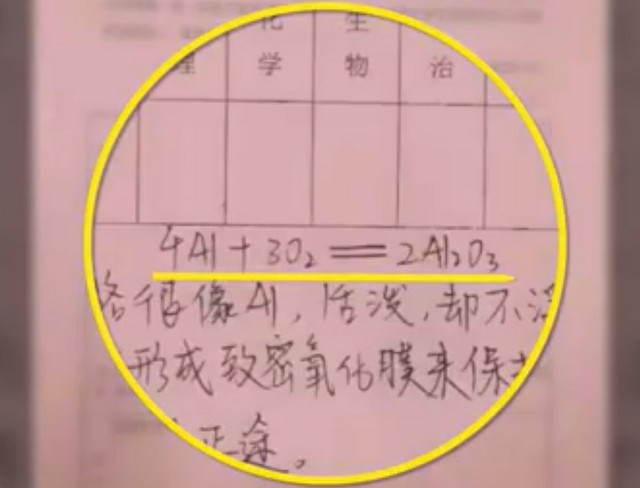 化 生
理 学 物 治
4Al + 3O₂ == 2Al₂O₃
很像Al, 活泼, 却不
形成致密氧化膜来保
正途。